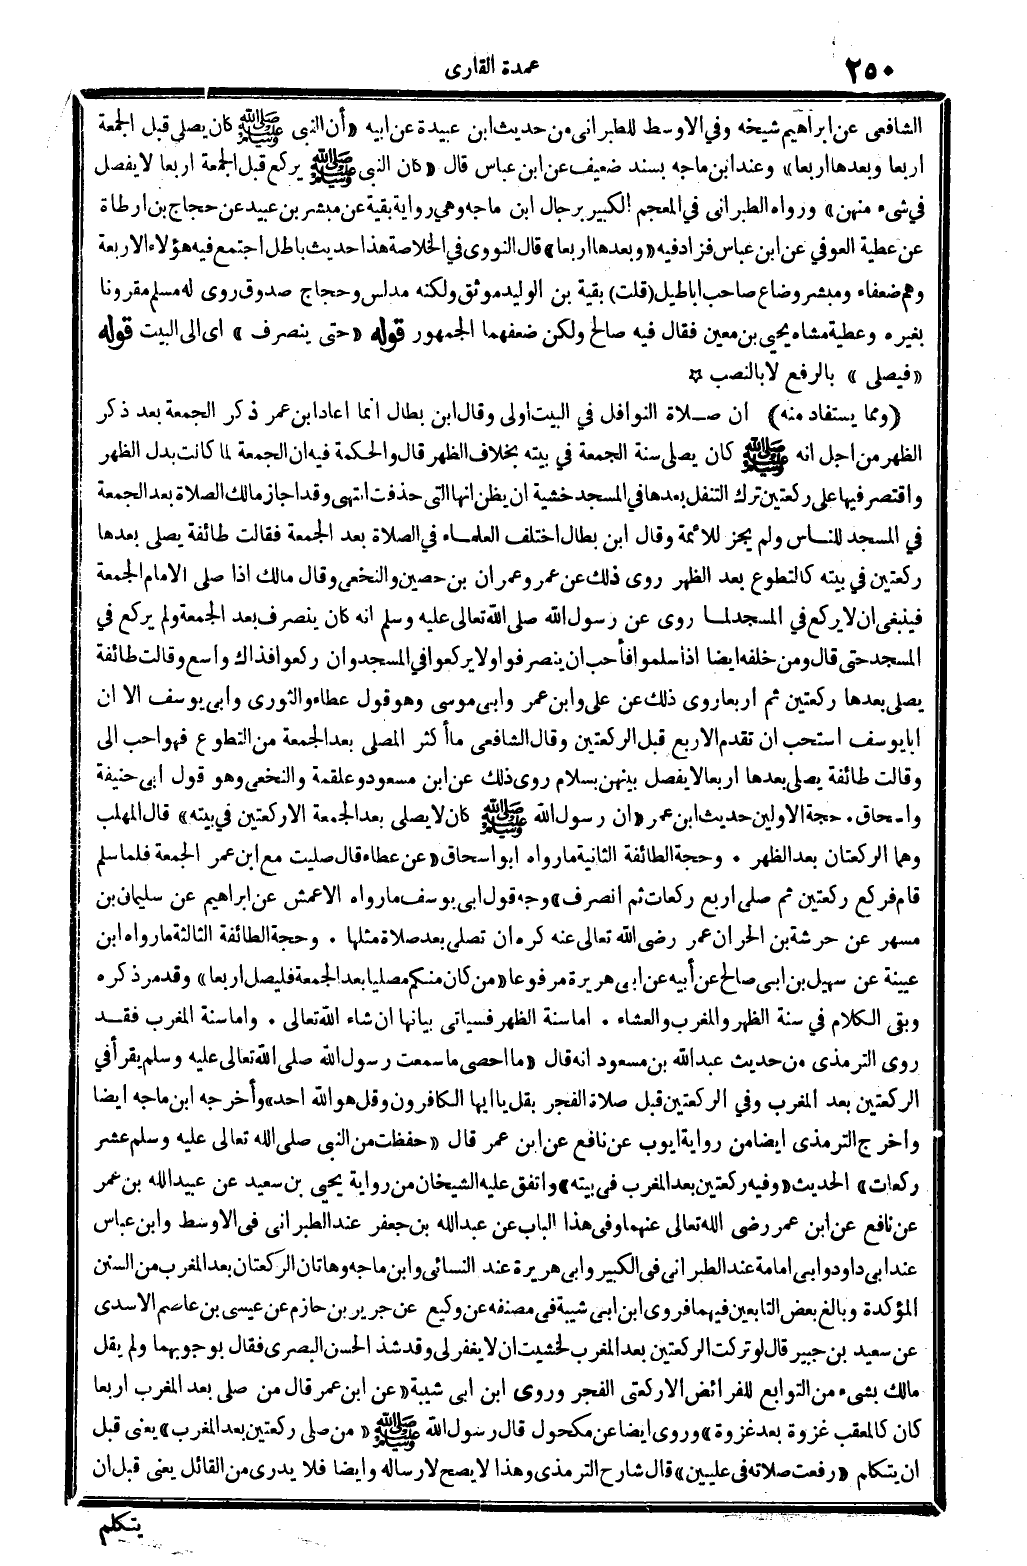 ٢٥٠
عمدة القارى
الشافعى عن ابراهيم شيخه وفي الاوسط للطبرانى من حديث ابن عبيدة عن ابيه «أن النبى ﷺ كان يصلى قبل الجمعة
اربعا وبعدها اربعا» وعند ابن ماجه بسند ضعيف عن ابن عباس قال «كان النبى ﷺ يركع قبل الجمعة اربعا لا يفصل
في شىء منهن» ورواه الطبرانى في المعجم الكبير برجال ابن ماجه وهي رواية بقية عن مبشر بن عبيد عن حجاج بن ارطاة
عن عطية العوفي عن ابن عباس فزاد فيه «وبعدها اربعا» قال النووى في الخلاصة هذا حديث باطل اجتمع فيه هؤلاء الاربعة
وهم ضعفاء ومبشر وضاع صاحب اباطيل (قلت) بقية بن الوليد موثق ولكنه مدلس وحجاج صدوق روى له مسلم مقرونا
بغيره وعطية مشاه يحيى بن معين فقال فيه صالح ولكن ضعفهما الجمهور قوله «حتى ينصرف» اى الى البيت قوله
«فيصلى» بالرفع لا بالنصب ✿
(ومما يستفاد منه) ان صـلاة النوافل في البيت اولى وقال ابن بطال انما اعاد ابن عمر ذكر الجمعة بعد ذكر
الظهر من اجل انه ﷺ كان يصلى سنة الجمعة في بيته بخلاف الظهر قال والحكمة فيه ان الجمعة لما كانت بدل الظهر
واقتصر فيها على ركعتين ترك التنفل بعدها في المسجد خشية ان يظن انها التى حذفت انتهى وقد اجاز مالك الصلاة بعد الجمعة
في المسجد للنـاس ولم يجز للائمة وقال ابن بطال اختلف العلمـاء في الصلاة بعد الجمعة فقالت طائفة يصلى بعدها
ركعتين في بيته كالتطوع بعد الظهر روى ذلك عن عمر وعمران بن حصين والنخعى وقال مالك اذا صلى الامام الجمعة
فينبغى ان لا يركع في المسجد لمـا روى عن رسول الله صلى الله تعالى عليه وسلم انه كان ينصرف بعد الجمعة ولم يركع في
المسجد حتى قال ومن خلفه ايضا اذا سلموا فأحب ان ينصرفوا ولا يركعوا في المسجد وان ركعوا فذاك واسع وقالت طائفة
يصلى بعدها ركعتين ثم اربعا روى ذلك عن على وابن عمر وابى موسى وهو قول عطاء والثورى وابى يوسف الا ان
ابا يوسف استحب ان تقدم الاربع قبل الركعتين وقال الشافعى ما أكثر المصلى بعد الجمعة من التطوع فهو احب الى
وقالت طائفة يصلى بعدها اربعا لا يفصل بينهن بسلام روى ذلك عن ابن مسعود وعلقمة والنخعى وهو قول ابى حنيفة
واسحاق. حجة الاولين حديث ابن عمر «ان رسول الله ﷺ كان لا يصلى بعد الجمعة الا ركعتين في بيته» قال المهلب
وهما الركعتان بعد الظهر . وحجة الطائفة الثانية ما رواه ابو اسحاق «عن عطاء قال صليت مع ابن عمر الجمعة فلما سلم
قام فركع ركعتين ثم صلى اربع ركعات ثم انصرف» وجه قول ابى يوسف ما رواه الاعمش عن ابراهيم عن سليمان بن
مسهر عن حرشة بن الحر ان عمر رضى الله تعالى عنه كره ان تصلى بعد صلاة مثلها . وحجة الطائفة الثالثة ما رواه ابن
عيينة عن سهيل بن ابى صالح عن أبيه عن ابى هريرة مرفوعا «من كان منكم مصليا بعد الجمعة فليصل اربعا» وقد مر ذكره
وبقى الكلام في سنة الظهر والمغرب والعشاء . اما سنة الظهر فسياتى بيانها ان شاء الله تعالى . واما سنة المغرب فقـد
روى الترمذى من حديث عبد الله بن مسعود انه قال «ما احصى ما سمعت رسول الله صلى الله تعالى عليه وسلم يقرأ في
الركعتين بعد المغرب وفي الركعتين قبل صلاة الفجر بقل يا ايها الكافرون وقل هو الله احد» وأخرجه ابن ماجه ايضا
واخرج الترمذى ايضا من رواية ايوب عن نافع عن ابن عمر قال «حفظت من النبى صلى الله تعالى عليه وسلم عشر
ركعات» الحديث «وفيه ركعتين بعد المغرب في بيته» واتفق عليه الشيخان من رواية يحيى بن سعيد عن عبيد الله بن عمر
عن نافع عن ابن عمر رضى الله تعالى عنهما وفى هذا الباب عن عبد الله بن جعفر عند الطبرانى فى الاوسط وابن عباس
عند ابى داود وابى امامة عند الطبرانى فى الكبير وابى هريرة عند النسائى وابن ماجه وهاتان الركعتان بعد المغرب من السنن
المؤكدة وبالغ بعض التابعين فيهما فروى ابن ابى شيبة فى مصنفه عن وكيع عن جرير بن حازم عن عيسى بن عاصم الاسدى
عن سعيد بن جبير قال لو تركت الركعتين بعد المغرب لخشيت ان لا يغفر لى وقد شذ الحسن البصرى فقال بوجوبهما ولم يقل
مالك بشىء من التوابع للفرائض الا ركعتى الفجر وروى ابن ابى شيبة «عن ابن عمر قال من صلى بعد المغرب اربعا
كان كالمعقب غزوة بعد غزوة» وروى ايضا عن مكحول قال رسول الله ﷺ «من صلى ركعتين بعد المغرب» يعنى قبل
ان يتكلم «رفعت صلاته فى عليين» قال شارح الترمذى وهذا لا يصح لارساله وايضا فلا يدرى من القائل يعنى قبل ان
يتكلم